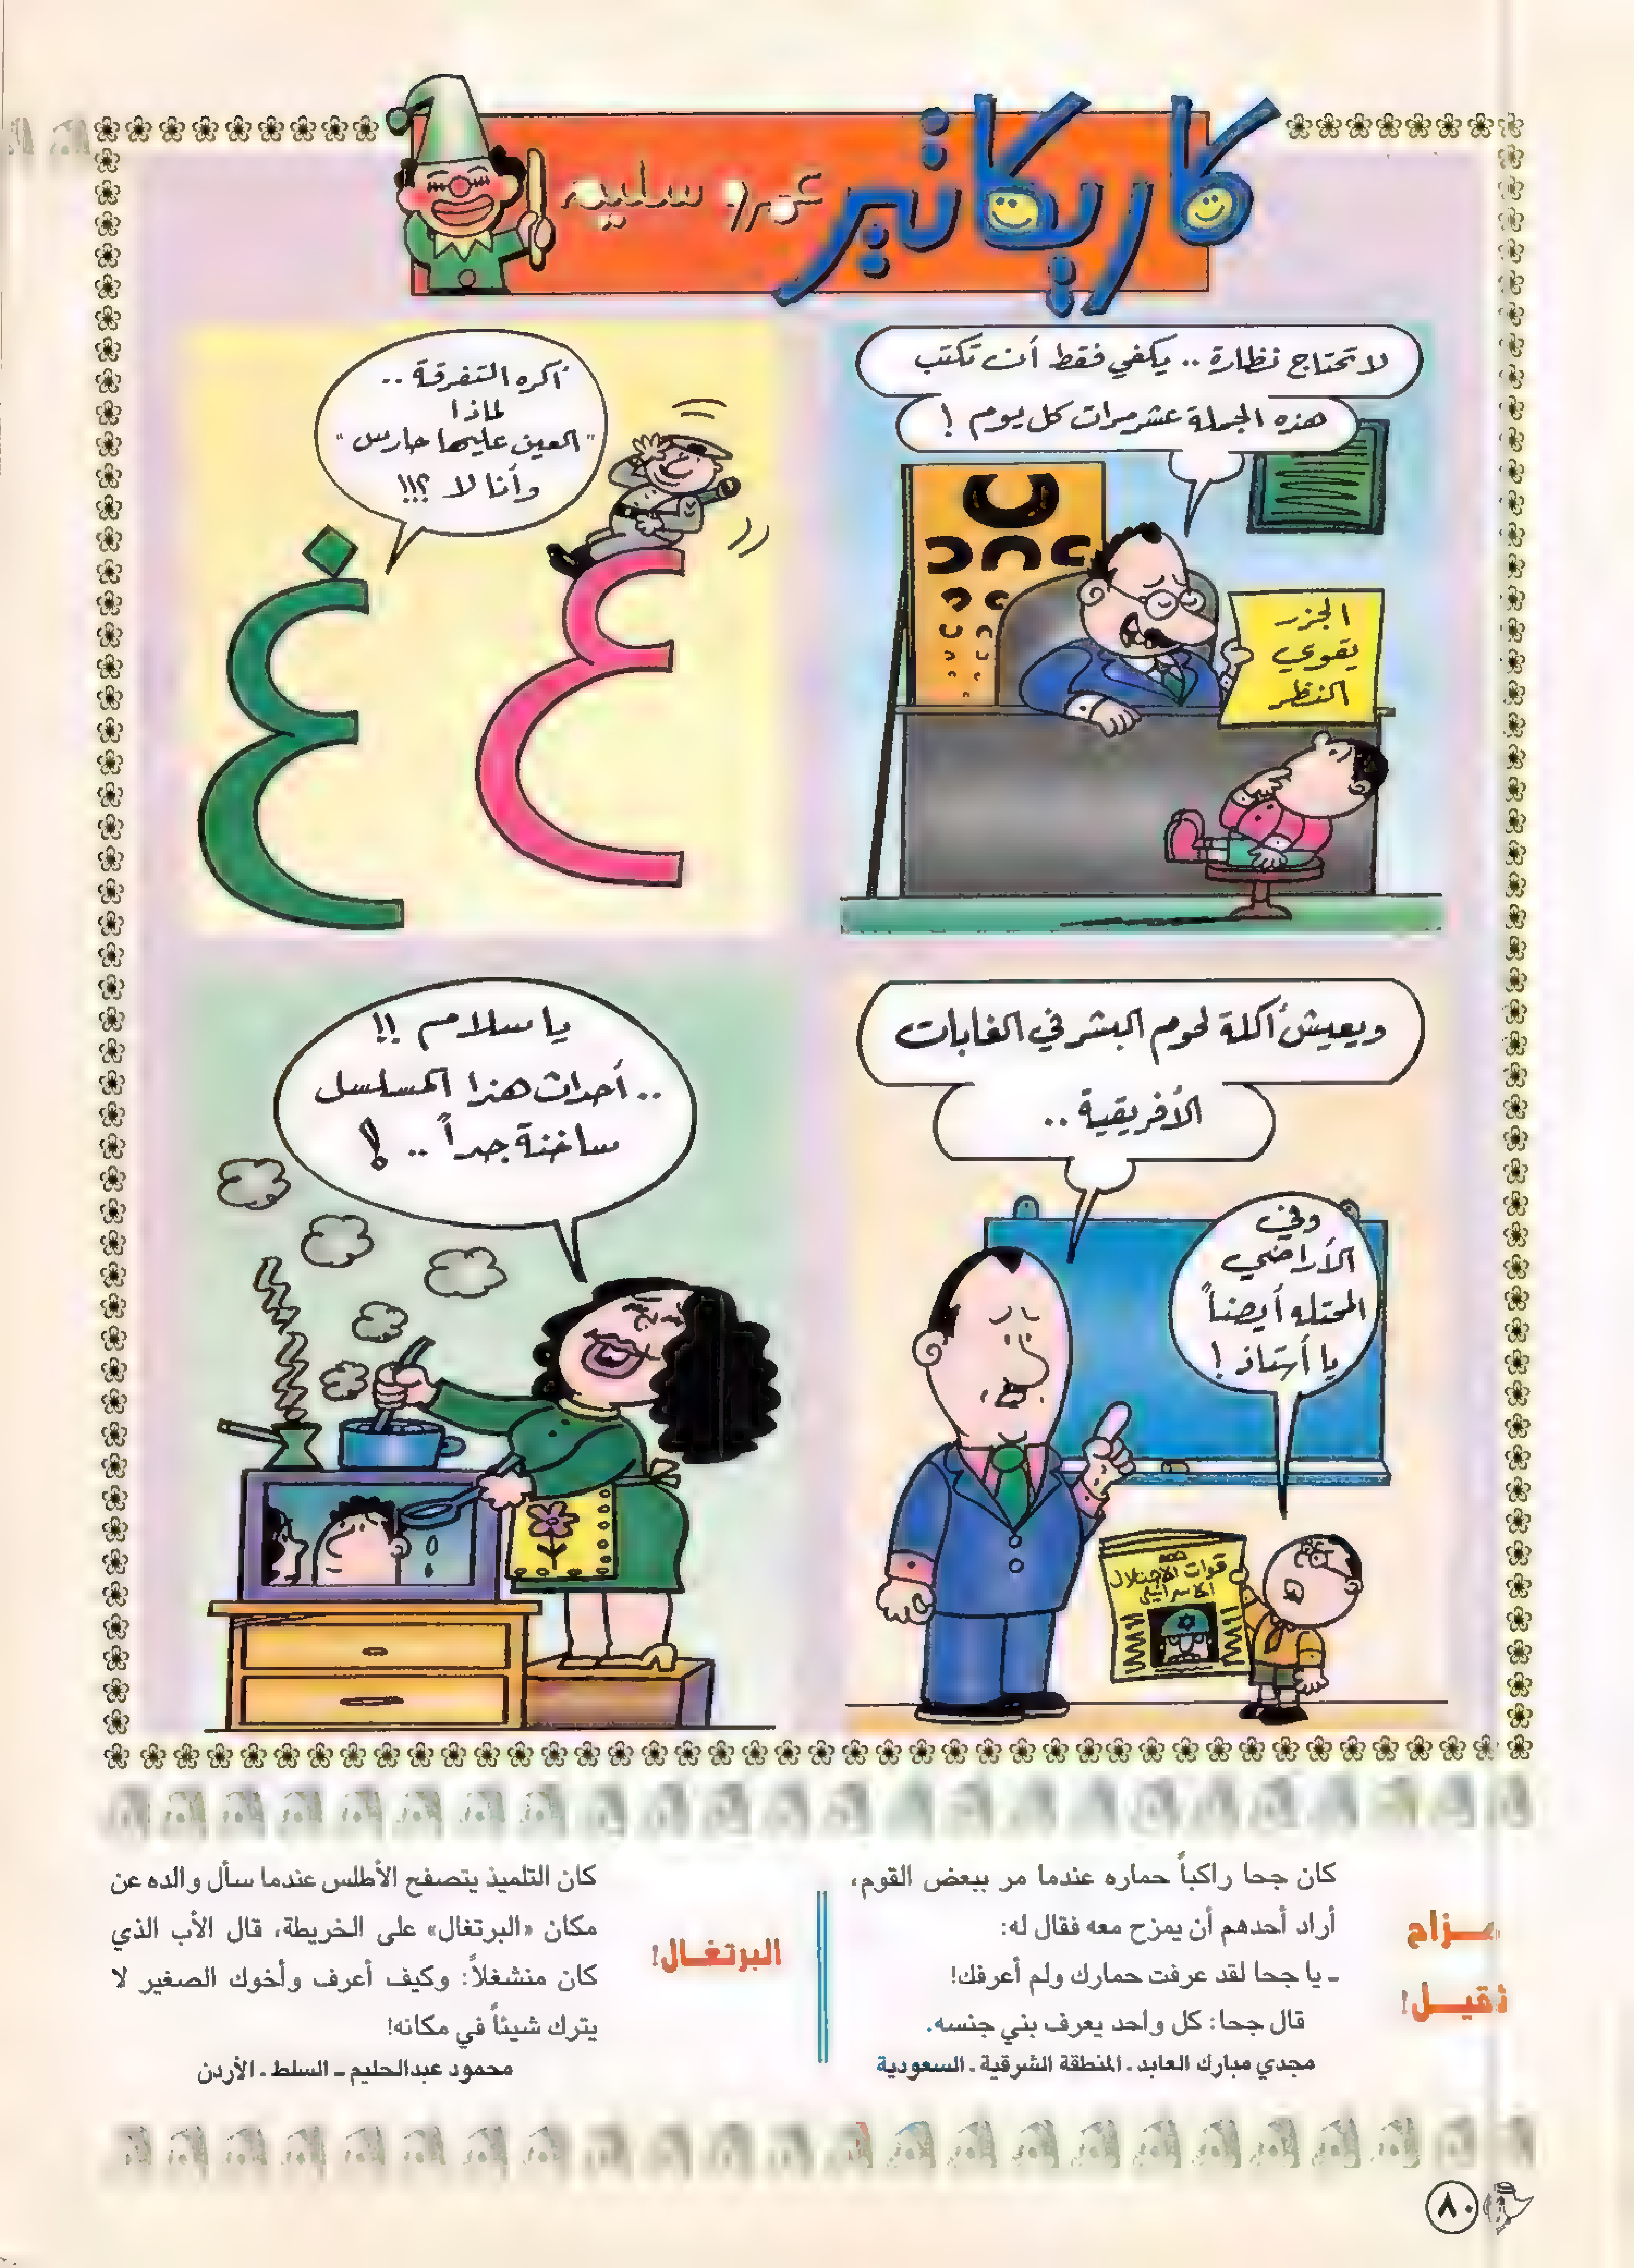 كاريكاتير
عمرو سليم
لا تحتاج نظارة .. يكفي فقط أن تكتب
هذه الجملة عشر مرات كل يوم !
الجزر
يقوي
النظر
أكره التفرقة ..
لماذا
"العين عليها حارس"
وأنا لا ؟!!!
ع
غ
ويعيش أكلة لحوم البشر في الغابات
الأفريقية ..
وفي
الأراضي
المحتله أيضاً
يا أستاذ !
قوات الاحتلال
الاسرائيلي
يا سلام !!
.. أحداث هذا المسلسل
ساخنة جداً .. !
مـزاح
ثقيـل!
كان جحا راكباً حماره عندما مر ببعض القوم،
أراد أحدهم أن يمزح معه فقال له:
ـ يا جحا لقد عرفت حمارك ولم أعرفك!
قال جحا: كل واحد يعرف بني جنسه.
مجدي مبارك العابد ـ المنطقة الشرقية ـ السعودية
البرتغـال!
كان التلميذ يتصفح الأطلس عندما سأل والده عن
مكان «البرتغال» على الخريطة، قال الأب الذي
كان منشغلاً: وكيف أعرف وأخوك الصغير لا
يترك شيئاً في مكانه!
محمود عبدالحليم ـ السلط ـ الأردن
٨٠